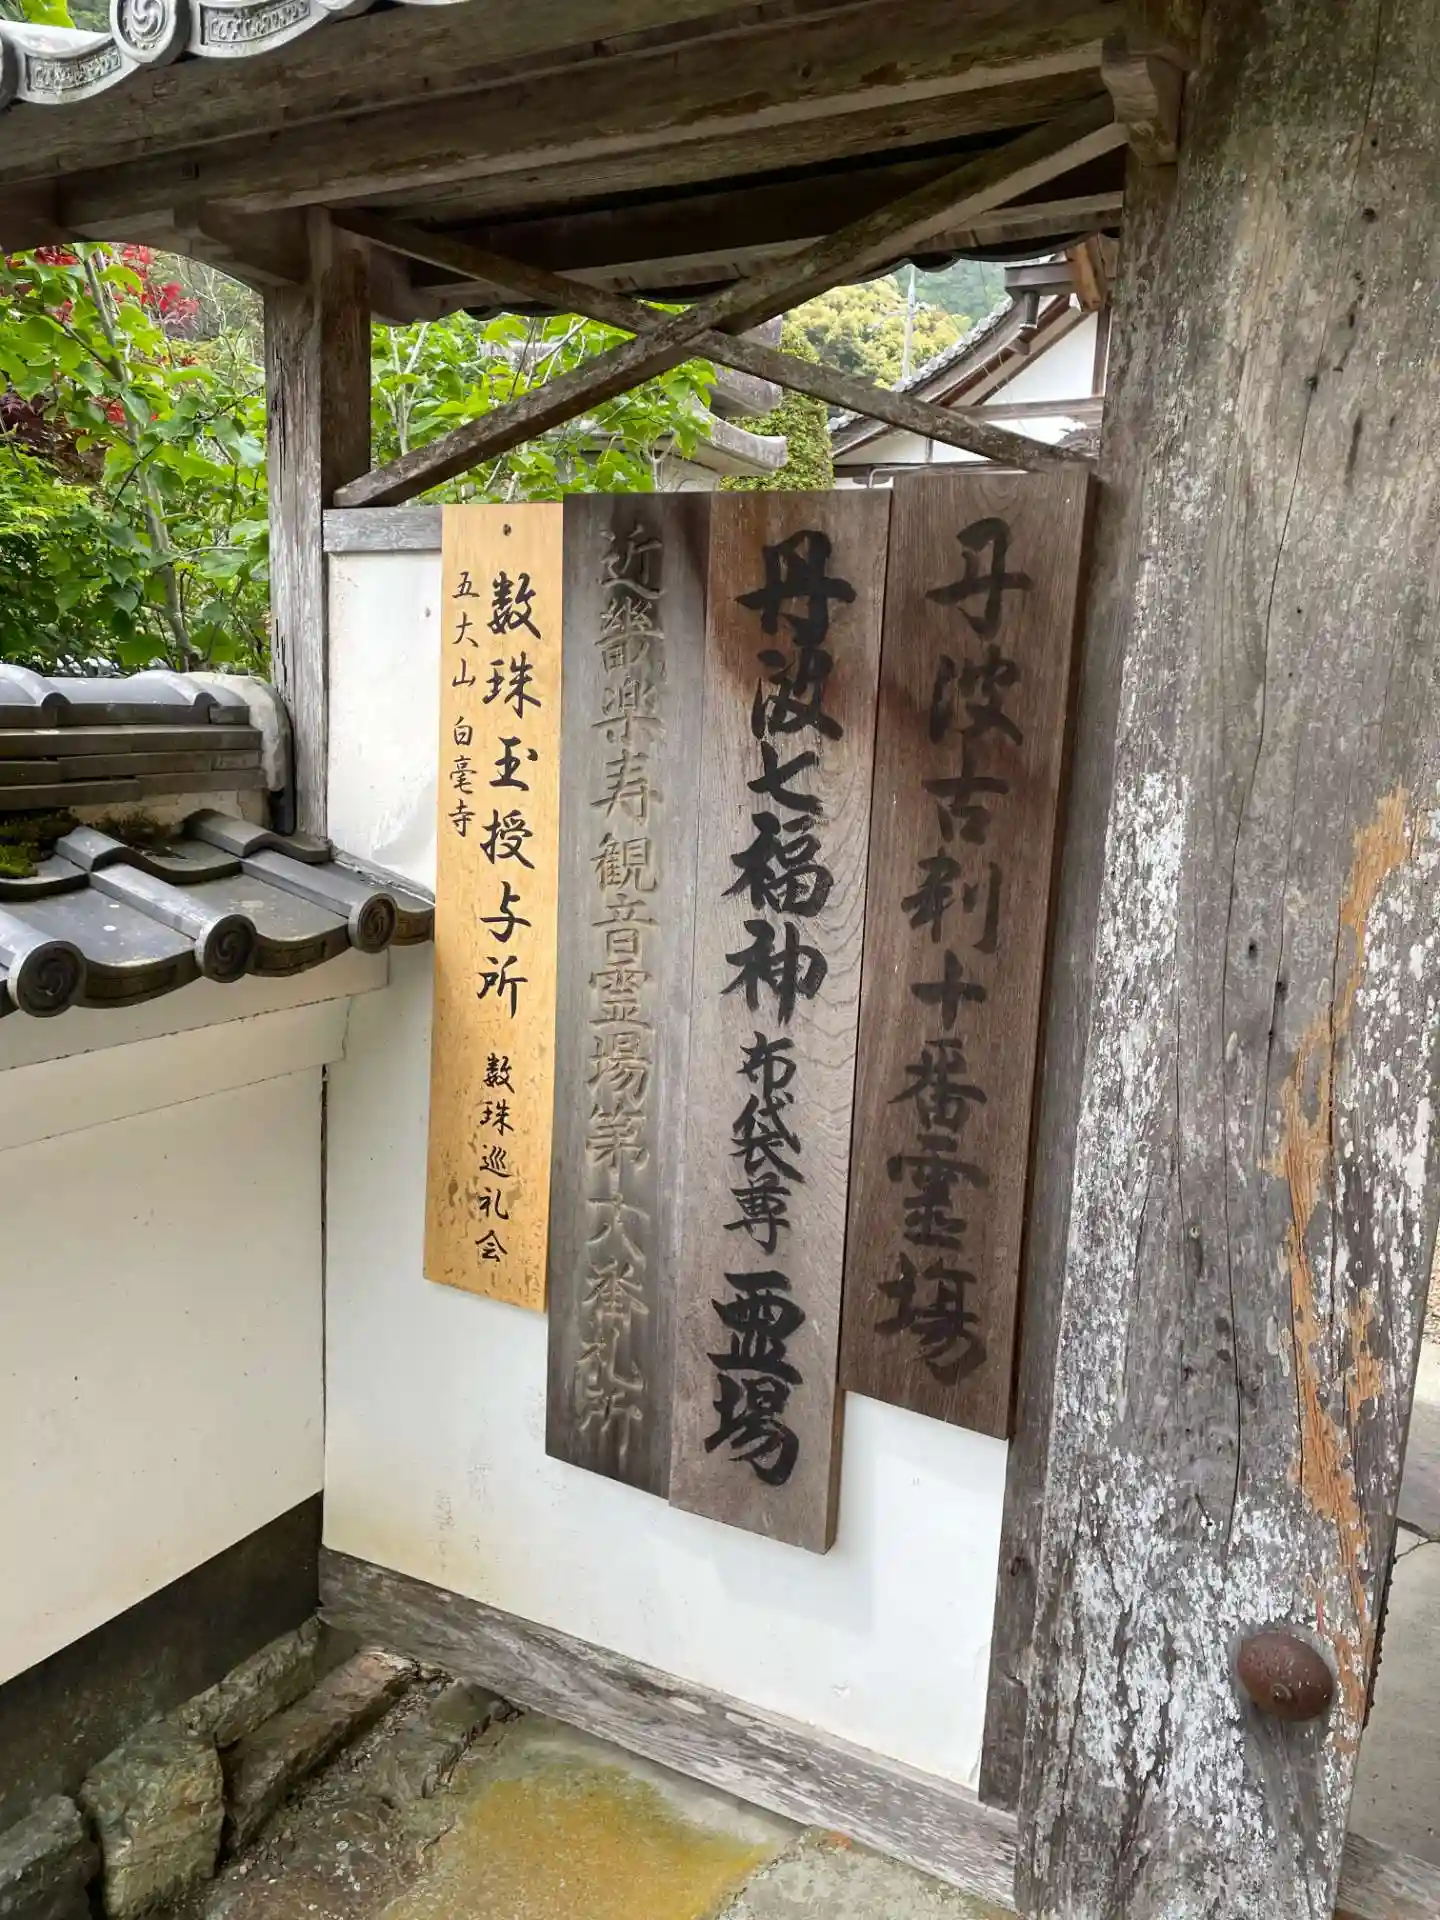 丹波古刹十番霊場
丹波七福神 布袋尊 霊場
近畿楽寿観音霊場第六番札所
数珠玉授与所 数珠巡礼会
五大山 白毫寺